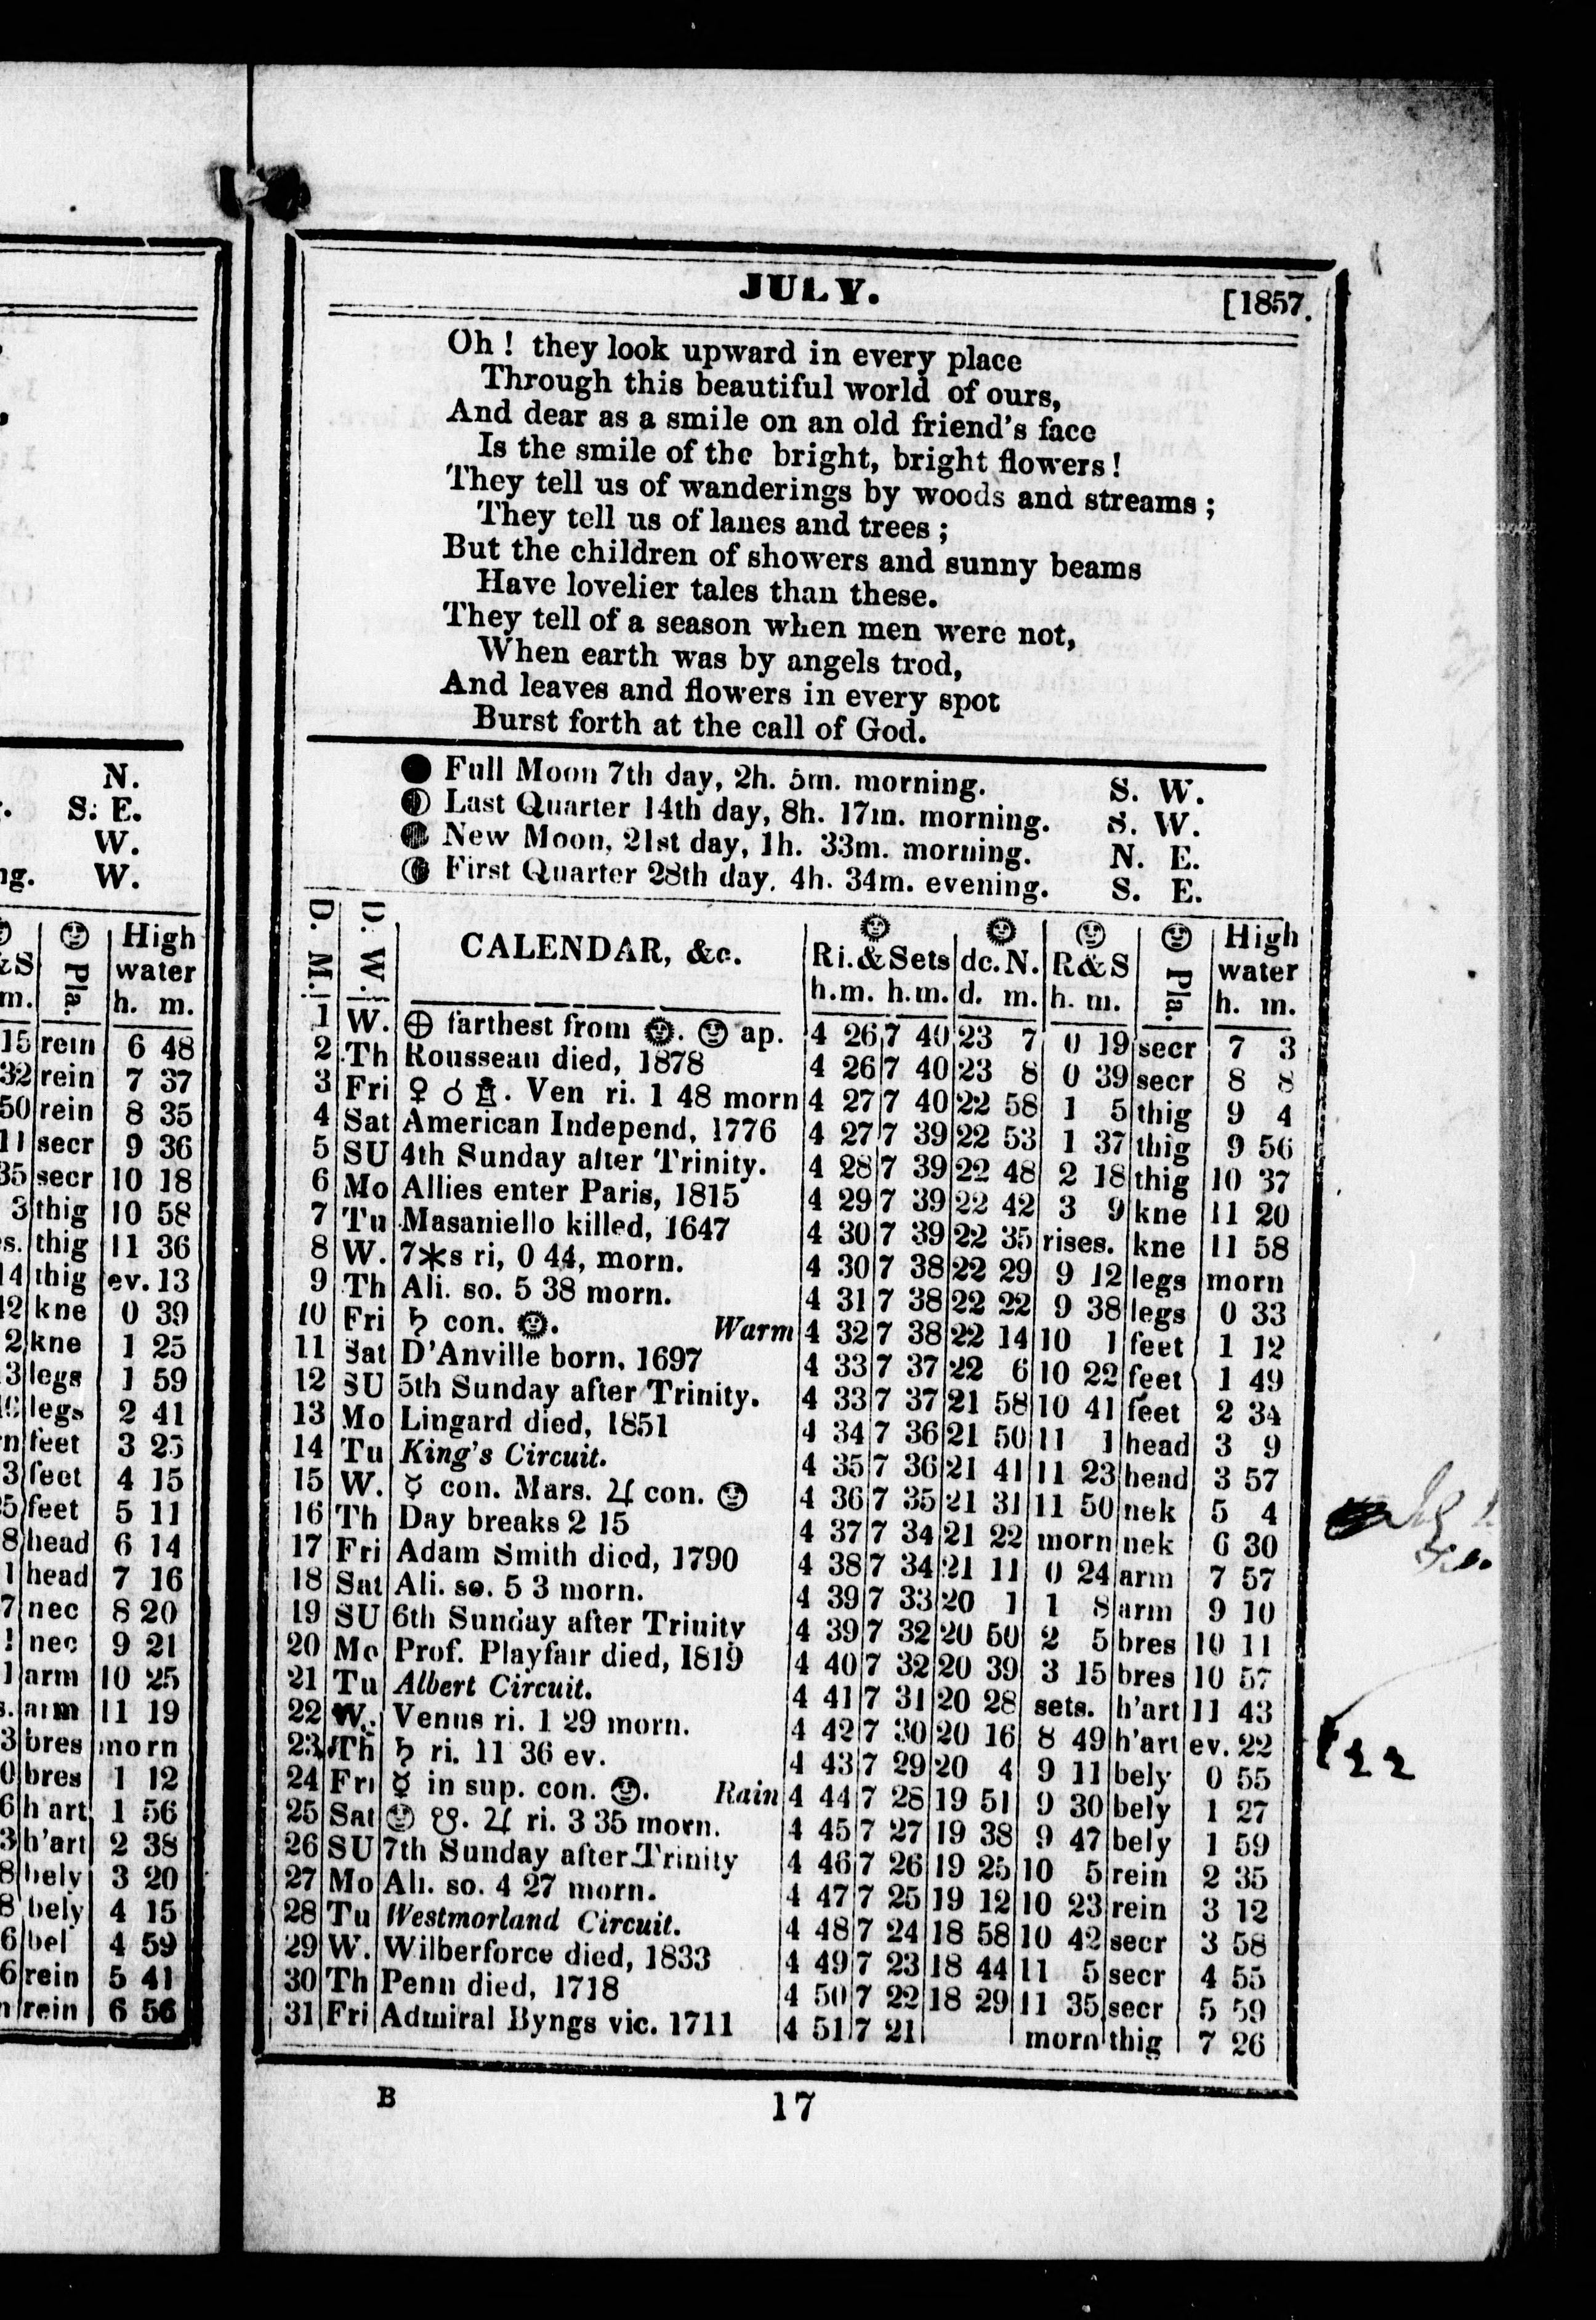 N.
S. E.
W.
ng. W.
&S Pla. High water
m. h. m.
15 rein 6 48
32 rein 7 37
50 rein 8 35
11 secr 9 36
35 secr 10 18
3 thig 10 58
s. thig 11 36
14 thig ev. 13
12 kne 0 39
2 kne 1 25
3 legs 1 59
legs 2 41
n feet 3 25
3 feet 4 15
5 feet 5 11
8 head 6 14
1 head 7 16
7 nec 8 20
nec 9 21
1 arm 10 25
s. arm 11 19
3 bres morn
0 bres 1 12
6 h'art 1 56
3 h'art 2 38
8 bely 3 20
8 bely 4 15
6 bel 4 59
6 rein 5 41
n rein 6 56
JULY. [1857.
Oh ! they look upward in every place
Through this beautiful world of ours,
And dear as a smile on an old friend's face
Is the smile of the bright, bright flowers !
They tell us of wanderings by woods and streams ;
They tell us of lanes and trees ;
But the children of showers and sunny beams
Have lovelier tales than these.
They tell of a season when men were not,
When earth was by angels trod,
And leaves and flowers in every spot
Burst forth at the call of God.
Full Moon 7th day, 2h. 5m. morning. S. W.
Last Quarter 14th day, 8h. 17m. morning. S. W.
New Moon, 21st day, 1h. 33m. morning. N. E.
First Quarter 28th day. 4h. 34m. evening. S. E.
D. M. D. W. CALENDAR, &c. Ri.&Sets dc. N. R&S Pla. High water
h.m. h.m. d. m. h. m. h. m.
1 W. ⊕ farthest from ☉. ☽ ap. 4 26 7 40 23 7 0 19 secr 7 3
2 Th Rousseau died, 1878 4 26 7 40 23 8 0 39 secr 8 8
3 Fri ♀ ☌ ♗. Ven ri. 1 48 morn 4 27 7 40 22 58 1 5 thig 9 4
4 Sat American Independ, 1776 4 27 7 39 22 53 1 37 thig 9 56
5 SU 4th Sunday after Trinity. 4 28 7 39 22 48 2 18 thig 10 37
6 Mo Allies enter Paris, 1815 4 29 7 39 22 42 3 9 kne 11 20
7 Tu Masaniello killed, 1647 4 30 7 39 22 35 rises. kne 11 58
8 W. 7*s ri, 0 44, morn. 4 30 7 38 22 29 9 12 legs morn
9 Th Ali. so. 5 38 morn. 4 31 7 38 22 22 9 38 legs 0 33
10 Fri ♄ con. ☉. Warm 4 32 7 38 22 14 10 1 feet 1 12
11 Sat D'Anville born, 1697 4 33 7 37 22 6 10 22 feet 1 49
12 SU 5th Sunday after Trinity. 4 33 7 37 21 58 10 41 feet 2 34
13 Mo Lingard died, 1851 4 34 7 36 21 50 11 1 head 3 9
14 Tu King's Circuit. 4 35 7 36 21 41 11 23 head 3 57
15 W. ☿ con. Mars. ♃ con. ☽ 4 36 7 35 21 31 11 50 nek 5 4
16 Th Day breaks 2 15 4 37 7 34 21 22 morn nek 6 30
17 Fri Adam Smith died, 1790 4 38 7 34 21 11 0 24 arm 7 57
18 Sat Ali. so. 5 3 morn. 4 39 7 33 20 1 1 8 arm 9 10
19 SU 6th Sunday after Trinity 4 39 7 32 20 50 2 5 bres 10 11
20 Mo Prof. Playfair died, 1819 4 40 7 32 20 39 3 15 bres 10 57
21 Tu Albert Circuit. 4 41 7 31 20 28 sets. h'art 11 43
22 W. Venus ri. 1 29 morn. 4 42 7 30 20 16 8 49 h'art ev. 22
23 Th ♄ ri. 11 36 ev. 4 43 7 29 20 4 9 11 bely 0 55
24 Fri ☿ in sup. con. ☽. Rain 4 44 7 28 19 51 9 30 bely 1 27
25 Sat ☽ ☋. ♃ ri. 3 35 morn. 4 45 7 27 19 38 9 47 bely 1 59
26 SU 7th Sunday after Trinity 4 46 7 26 19 25 10 5 rein 2 35
27 Mo Ali. so. 4 27 morn. 4 47 7 25 19 12 10 23 rein 3 12
28 Tu Westmorland Circuit. 4 48 7 24 18 58 10 42 secr 3 58
29 W. Wilberforce died, 1833 4 49 7 23 18 44 11 5 secr 4 55
30 Th Penn died, 1718 4 50 7 22 18 29 11 35 secr 5 59
31 Fri Admiral Byngs vic. 1711 4 51 7 21 morn thig 7 26
B 17
22